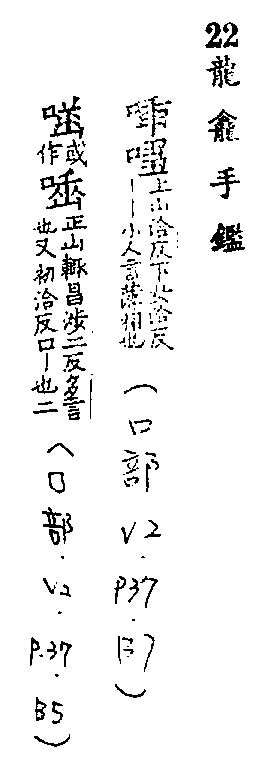 22 龍龕手鑑
上山洽反下 洽反
｜｜小人言薄 也
(口部 V2・P37・B7)
或作 正山輒昌涉二反多言
也又初洽反口｜也二
(口部・V2・P.37・B5)